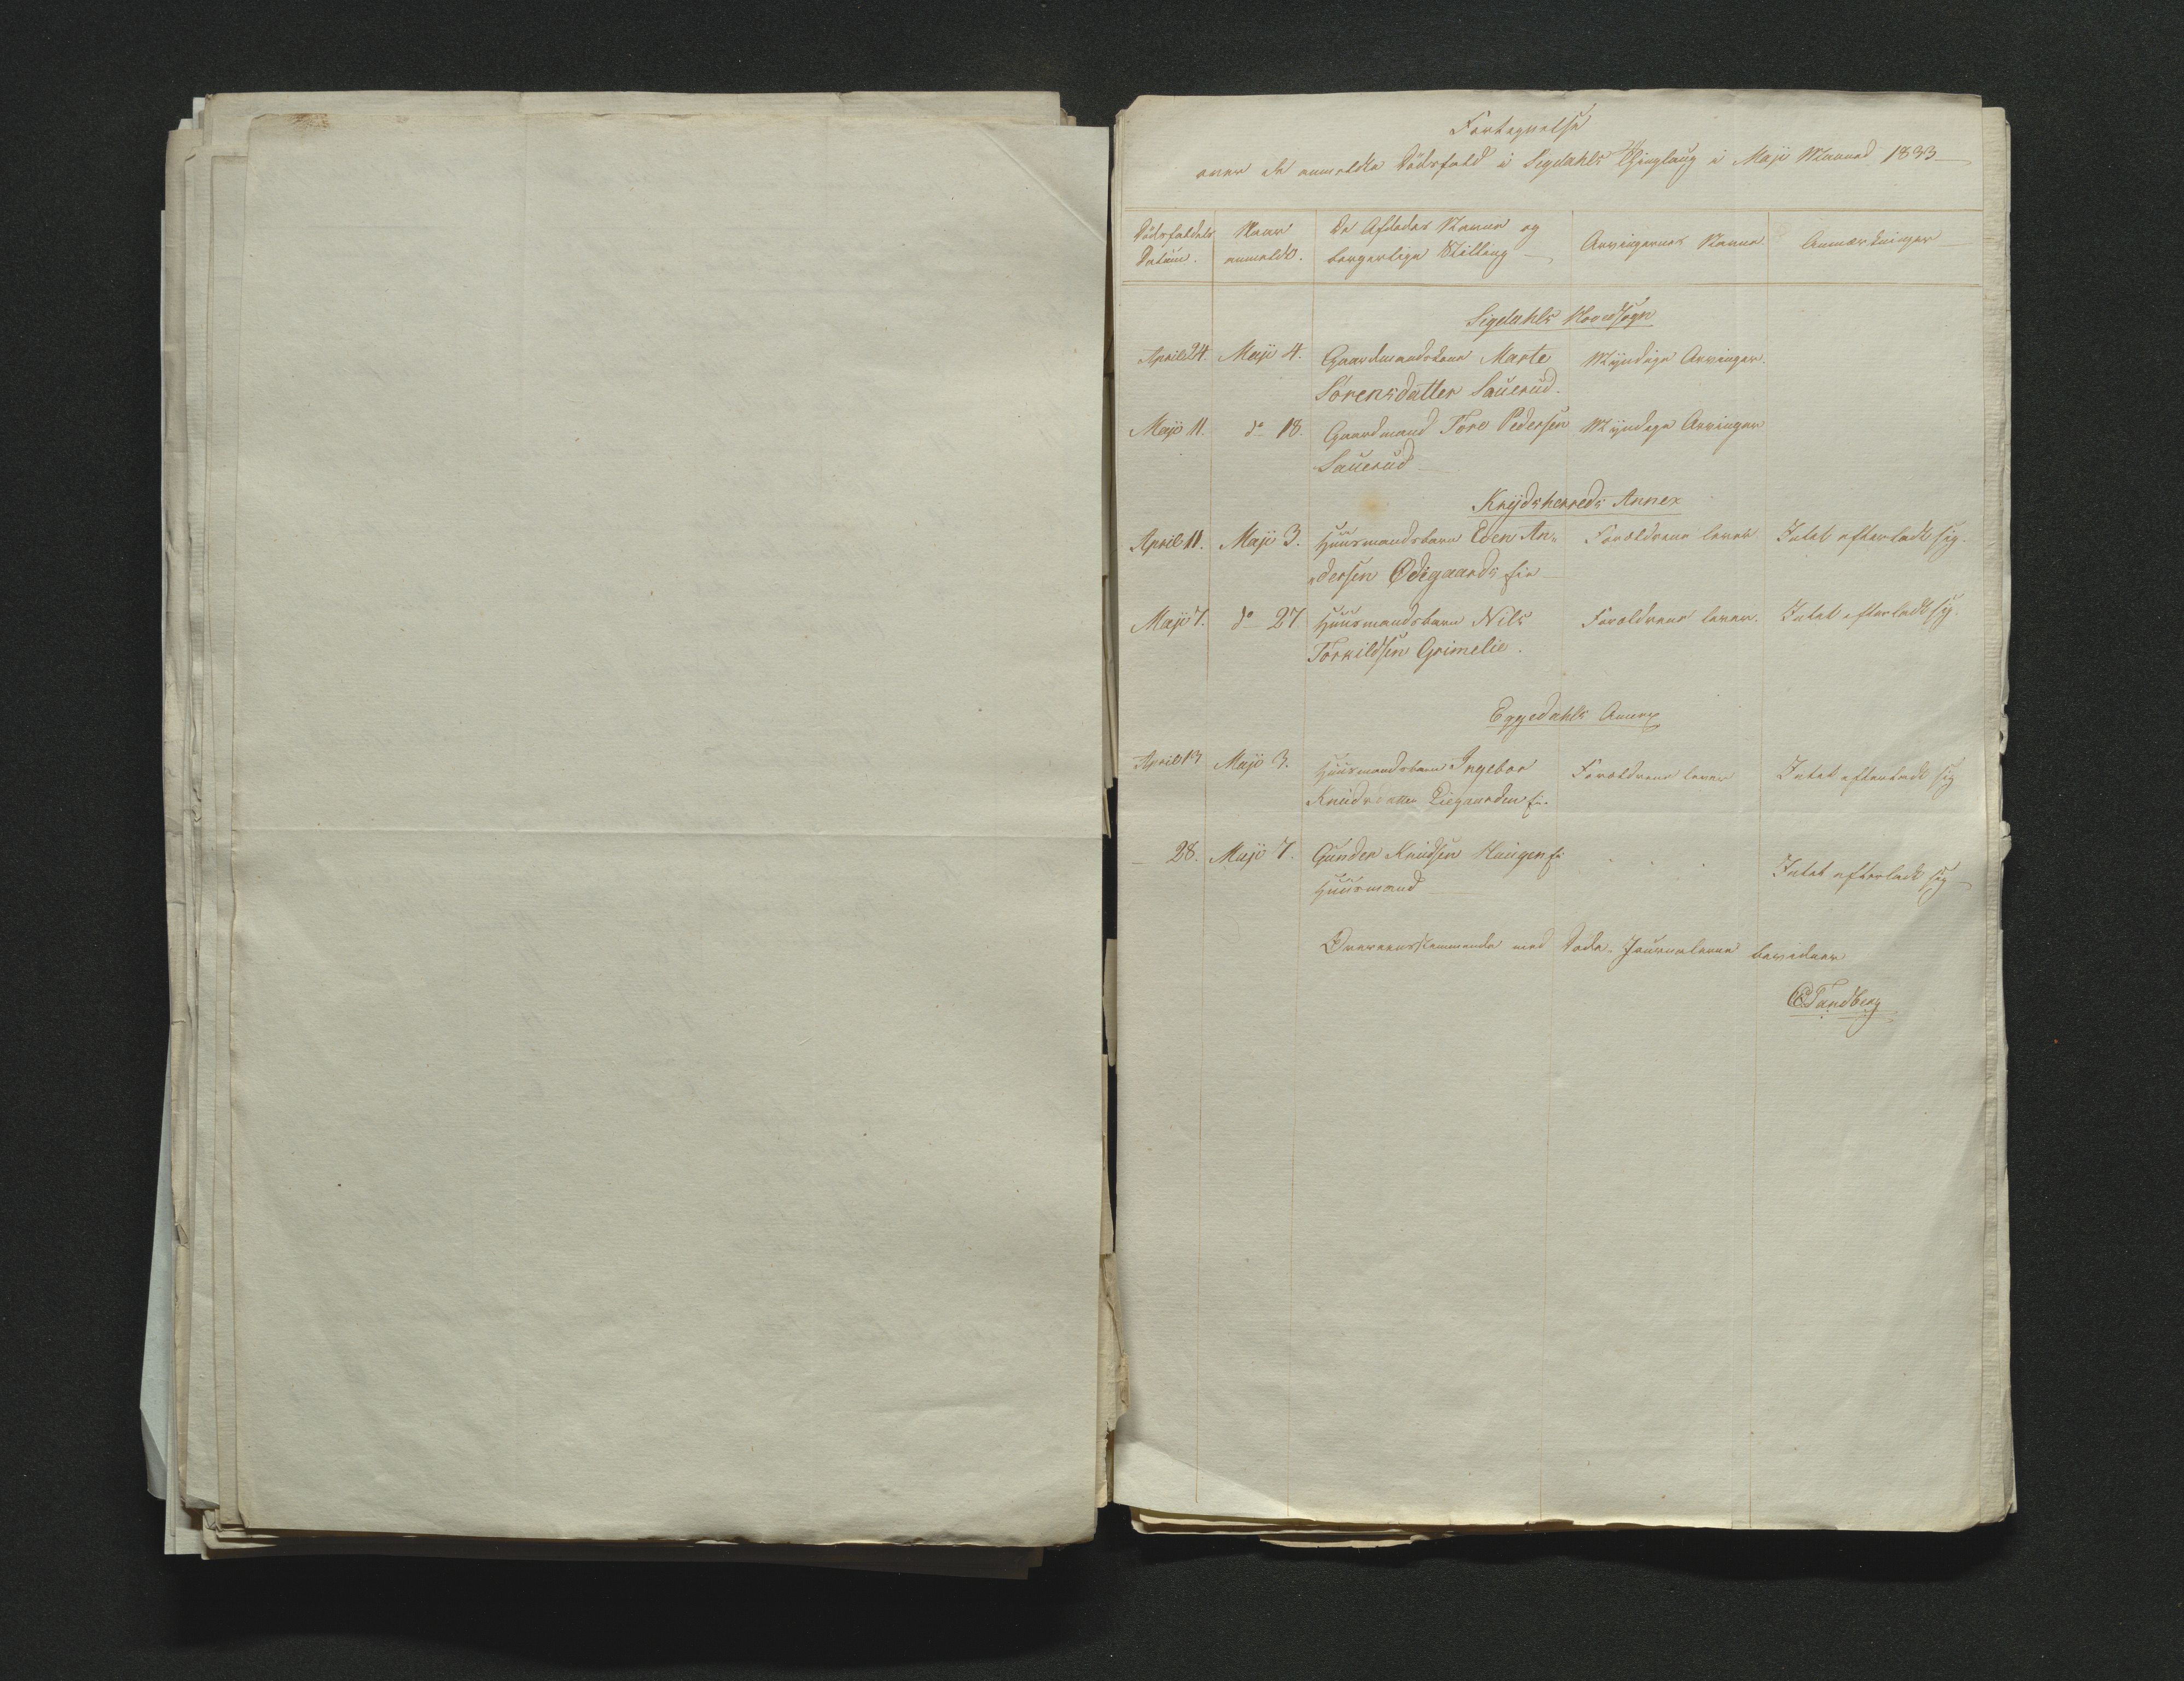 Fortegnelse
over de anmeldte Dødsfald i Sigdahls Thinglaug i Maji Maaned 1833
Dödsfaldets Naar De Afdødes Navne og Arvingernes Navne. Anmærkninger
Datum. anmeldt. borgerlige Stilling
Sigdahls Hovedsogn
April 24. Maji 4. Gaardmandskone Marte Myndige Arvinger.
Sörensdatter Sauerud.
Maji 11. do 18. Gaardmand Tore Pedersen Myndige Arvinger
Sauerud
Krydsherreds Annex
April 11. Maji 3. Huusmandsbarn Eden An- Forældrene lever Intet efterladt sig.
dersen Ødegaards eie
Maji 7. do 27 Huusmandsbarn Nils Forældrene lever. Intet efterladt sig.
Torkildsen Grimelie.
Eggedahls Annex
April 13 Maji 3. Huusmandsbarn Ingebor Forældrene lever Intet efterladt sig
Knudsdatter
28. Maji 7. Gunder Knudsen Haugen ei
Huusmand Intet efterladt sig
Overeensstemmende med Døde-Journalerne bevidner
Tandberg